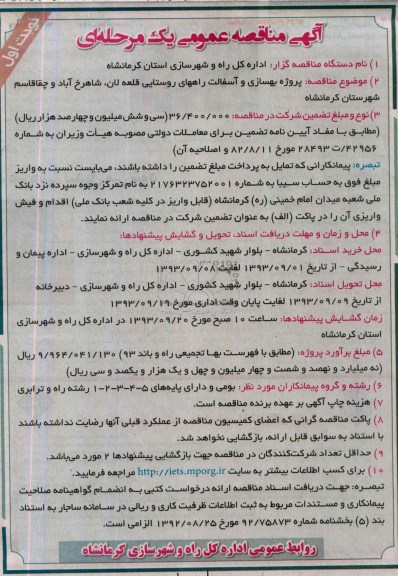 نوبت اول
آگهی مناقصه عمومی یک مرحله‌ای
۱) نام دستگاه مناقصه گزار: اداره کل راه و شهرسازی استان کرمانشاه
۲) موضوع مناقصه: پروژه بهسازی و آسفالت راههای روستایی قلعه لان، شاهرخ آباد و چقاقاسم
شهرستان کرمانشاه
۳) نوع و مبلغ تضمین شرکت در مناقصه: ۳۶/۴۰۰/۰۰۰(سی و شش میلیون و چهارصد هزار ریال)
(مطابق با مفاد آیین نامه تضمین برای معاملات دولتی مصوبه هیأت وزیران به شماره
۴۲۹۵۶/ت ۲۸۴۹۳ مورخ ۸۲/۸/۱۱ و اصلاحیه آن)
تبصره: پیمانکارانی که تمایل به پرداخت مبلغ تضمین را داشته باشند، می‌بایست نسبت به واریز
مبلغ فوق به حساب سیبا به شماره ۲۱۷۶۳۲۳۷۵۲۰۰۱ به نام تمرکز وجوه سپرده نزد بانک
ملی شعبه میدان امام خمینی (ره) کرمانشاه (قابل واریز در کلیه شعب بانک ملی) اقدام و فیش
واریزی آن را در پاکت (الف) به عنوان تضمین شرکت در مناقصه ارائه نمایند.
۴) محل و زمان و مهلت دریافت اسناد، تحویل و گشایش پیشنهادها:
محل خرید اسناد: کرمانشاه - بلوار شهید کشوری - اداره کل راه و شهرسازی - اداره پیمان و
رسیدگی - از تاریخ ۱۳۹۳/۰۹/۰۱ لغایت ۱۳۹۳/۰۹/۰۸
محل تحویل اسناد: کرمانشاه - بلوار شهید کشوری - اداره کل راه و شهرسازی - دبیرخانه
از تاریخ ۱۳۹۳/۰۹/۰۹ لغایت پایان وقت اداری مورخ ۱۳۹۳/۰۹/۱۹
زمان گشایش پیشنهادها: ساعت ۱۰ صبح مورخ ۱۳۹۳/۰۹/۲۰ در اداره کل راه و شهرسازی
استان کرمانشاه
۵) مبلغ برآورد پروژه: (مطابق با فهرست بها تجمیعی راه و باند ۹۳) ۹/۹۶۴/۰۴۱/۱۳۰ ریال
(نه میلیارد و نهصد و شصت و چهار میلیون و چهل و یک هزار و یکصد و سی ریال)
۶) رشته و گروه پیمانکاران مورد نظر: بومی و دارای پایه‌های ۵-۴-۳-۲-۱ رشته راه و ترابری
۷) هزینه چاپ آگهی بر عهده برنده مناقصه است.
۸) پاکت مناقصه گرانی که اعضای کمیسیون مناقصه از عملکرد قبلی آنها رضایت نداشته باشند
با استناد به سوابق قابل ارائه، بازگشایی نخواهد شد.
۹) حداقل تعداد شرکت‌کنندگان در مناقصه جهت بازگشایی پیشنهادها ۲ مورد می‌باشد.
۱۰) برای کسب اطلاعات بیشتر به سایت http://iets.mporg.ir مراجعه فرمایید.
تبصره: جهت دریافت اسناد مناقصه ارائه درخواست کتبی به انضمام گواهینامه صلاحیت
پیمانکاری و مستندات مربوط به ثبت اطلاعات ظرفیت کاری و ریالی در سامانه ساجار به استناد
بند (۵) بخشنامه شماره ۹۲/۷۵۸۷۳ مورخ ۱۳۹۲/۰۸/۲۵ الزامی است.
روابط عمومی اداره کل راه و شهرسازی کرمانشاه